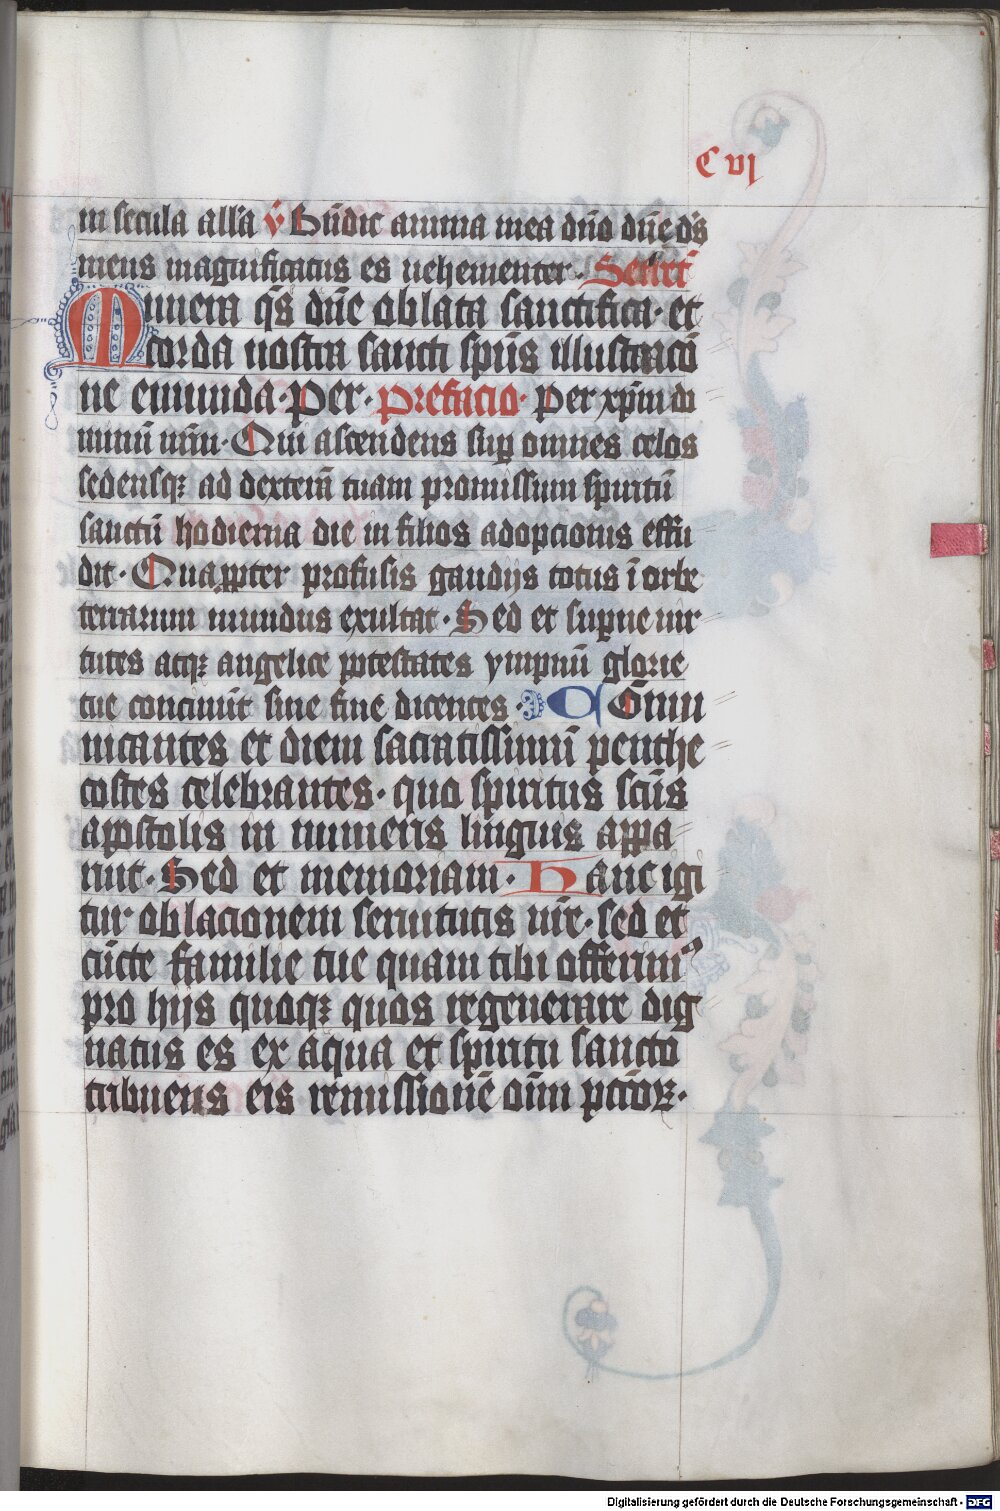 C vj
in secula all'a v̄ Bn̄dic anima mea dn̄o dn̄e ds̄
meus magnificatus es uehementer· Secret̄
Munera qs̄ dn̄e oblata sanctifica· et
corda nostra sancti sp̄us illustracō
ne emunda· Per· Prefacio· Per xp̄m do
minū nr̄m· Qui ascendens sup̱ omnes celos
sedensqꝫ ad dexterā tuam promissum spiritū
sanctū hodierna die in filios adopcionis effu
dit· Quap̱pter profusis gaudijs totus ī orbe
terrarum mundus exultat· Sed et sup̱ne uir
tutes atqꝫ angelice p̱otestates ympnū glorie
tue concinūt sine fine dicentes· Cōmu
nicantes et diem sacratissimū penthe
costes celebrantes· quo spiritus scūs
apostolis in numeris linguis appa
ruit· Sed et memoriam· Hanc igi
tur oblacionem seruitutis nr̄e· sed et
cūcte familie tue quam tibi offerimꝰ
pro hijs quoqꝫ quos regenerare dig
natus es ex aqua et spiritu sancto
tribuens eis remissionē oīm pctōꝝ·
Digitalisierung gefördert durch die Deutsche Forschungsgemeinschaft - DFG